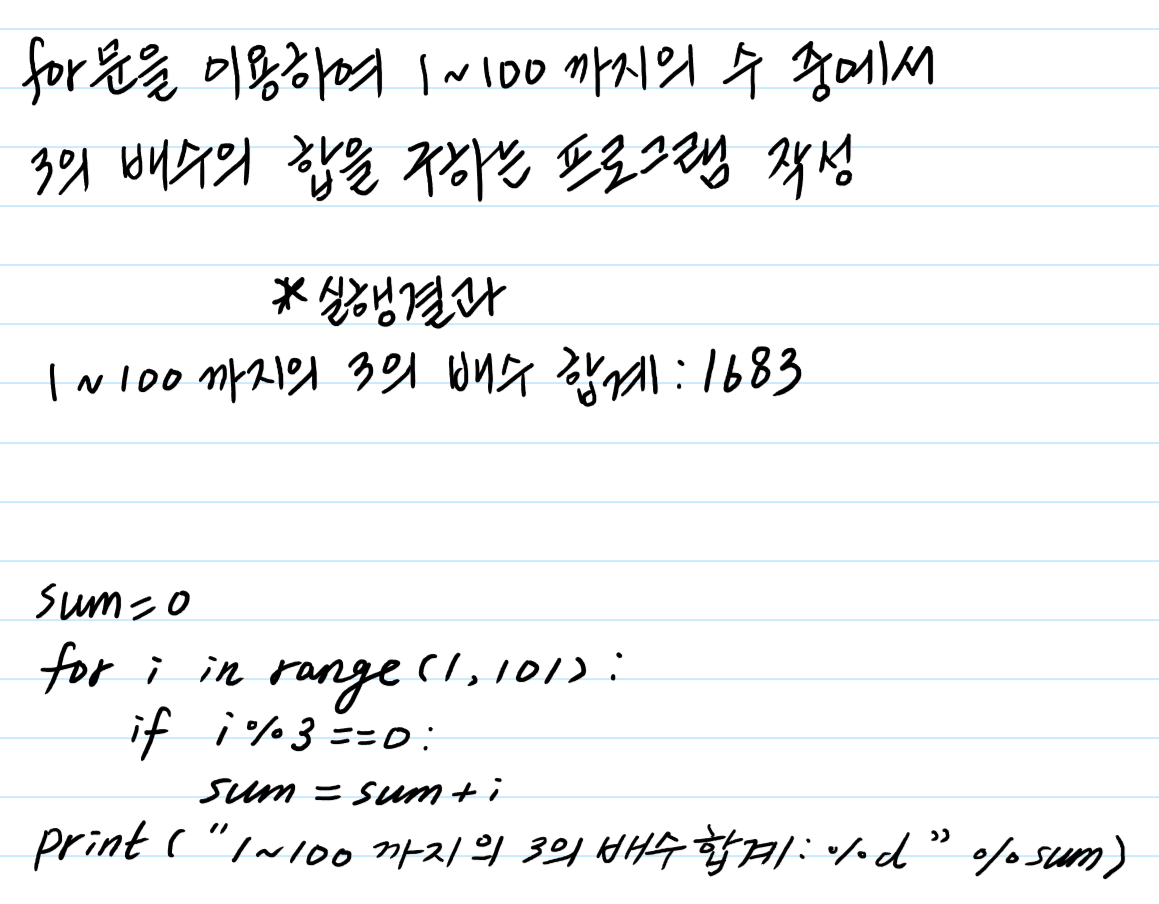 for문을 이용하여 1~100 까지의 수 중에서
3의 배수의 합을 구하는 프로그램 작성
*실행결과
1~100 까지의 3의 배수 합계:1683
sum=0
for i in range(1,101):
if i%3==0:
sum=sum+i
print("1~100 까지의 3의 배수합계:%d" %sum)